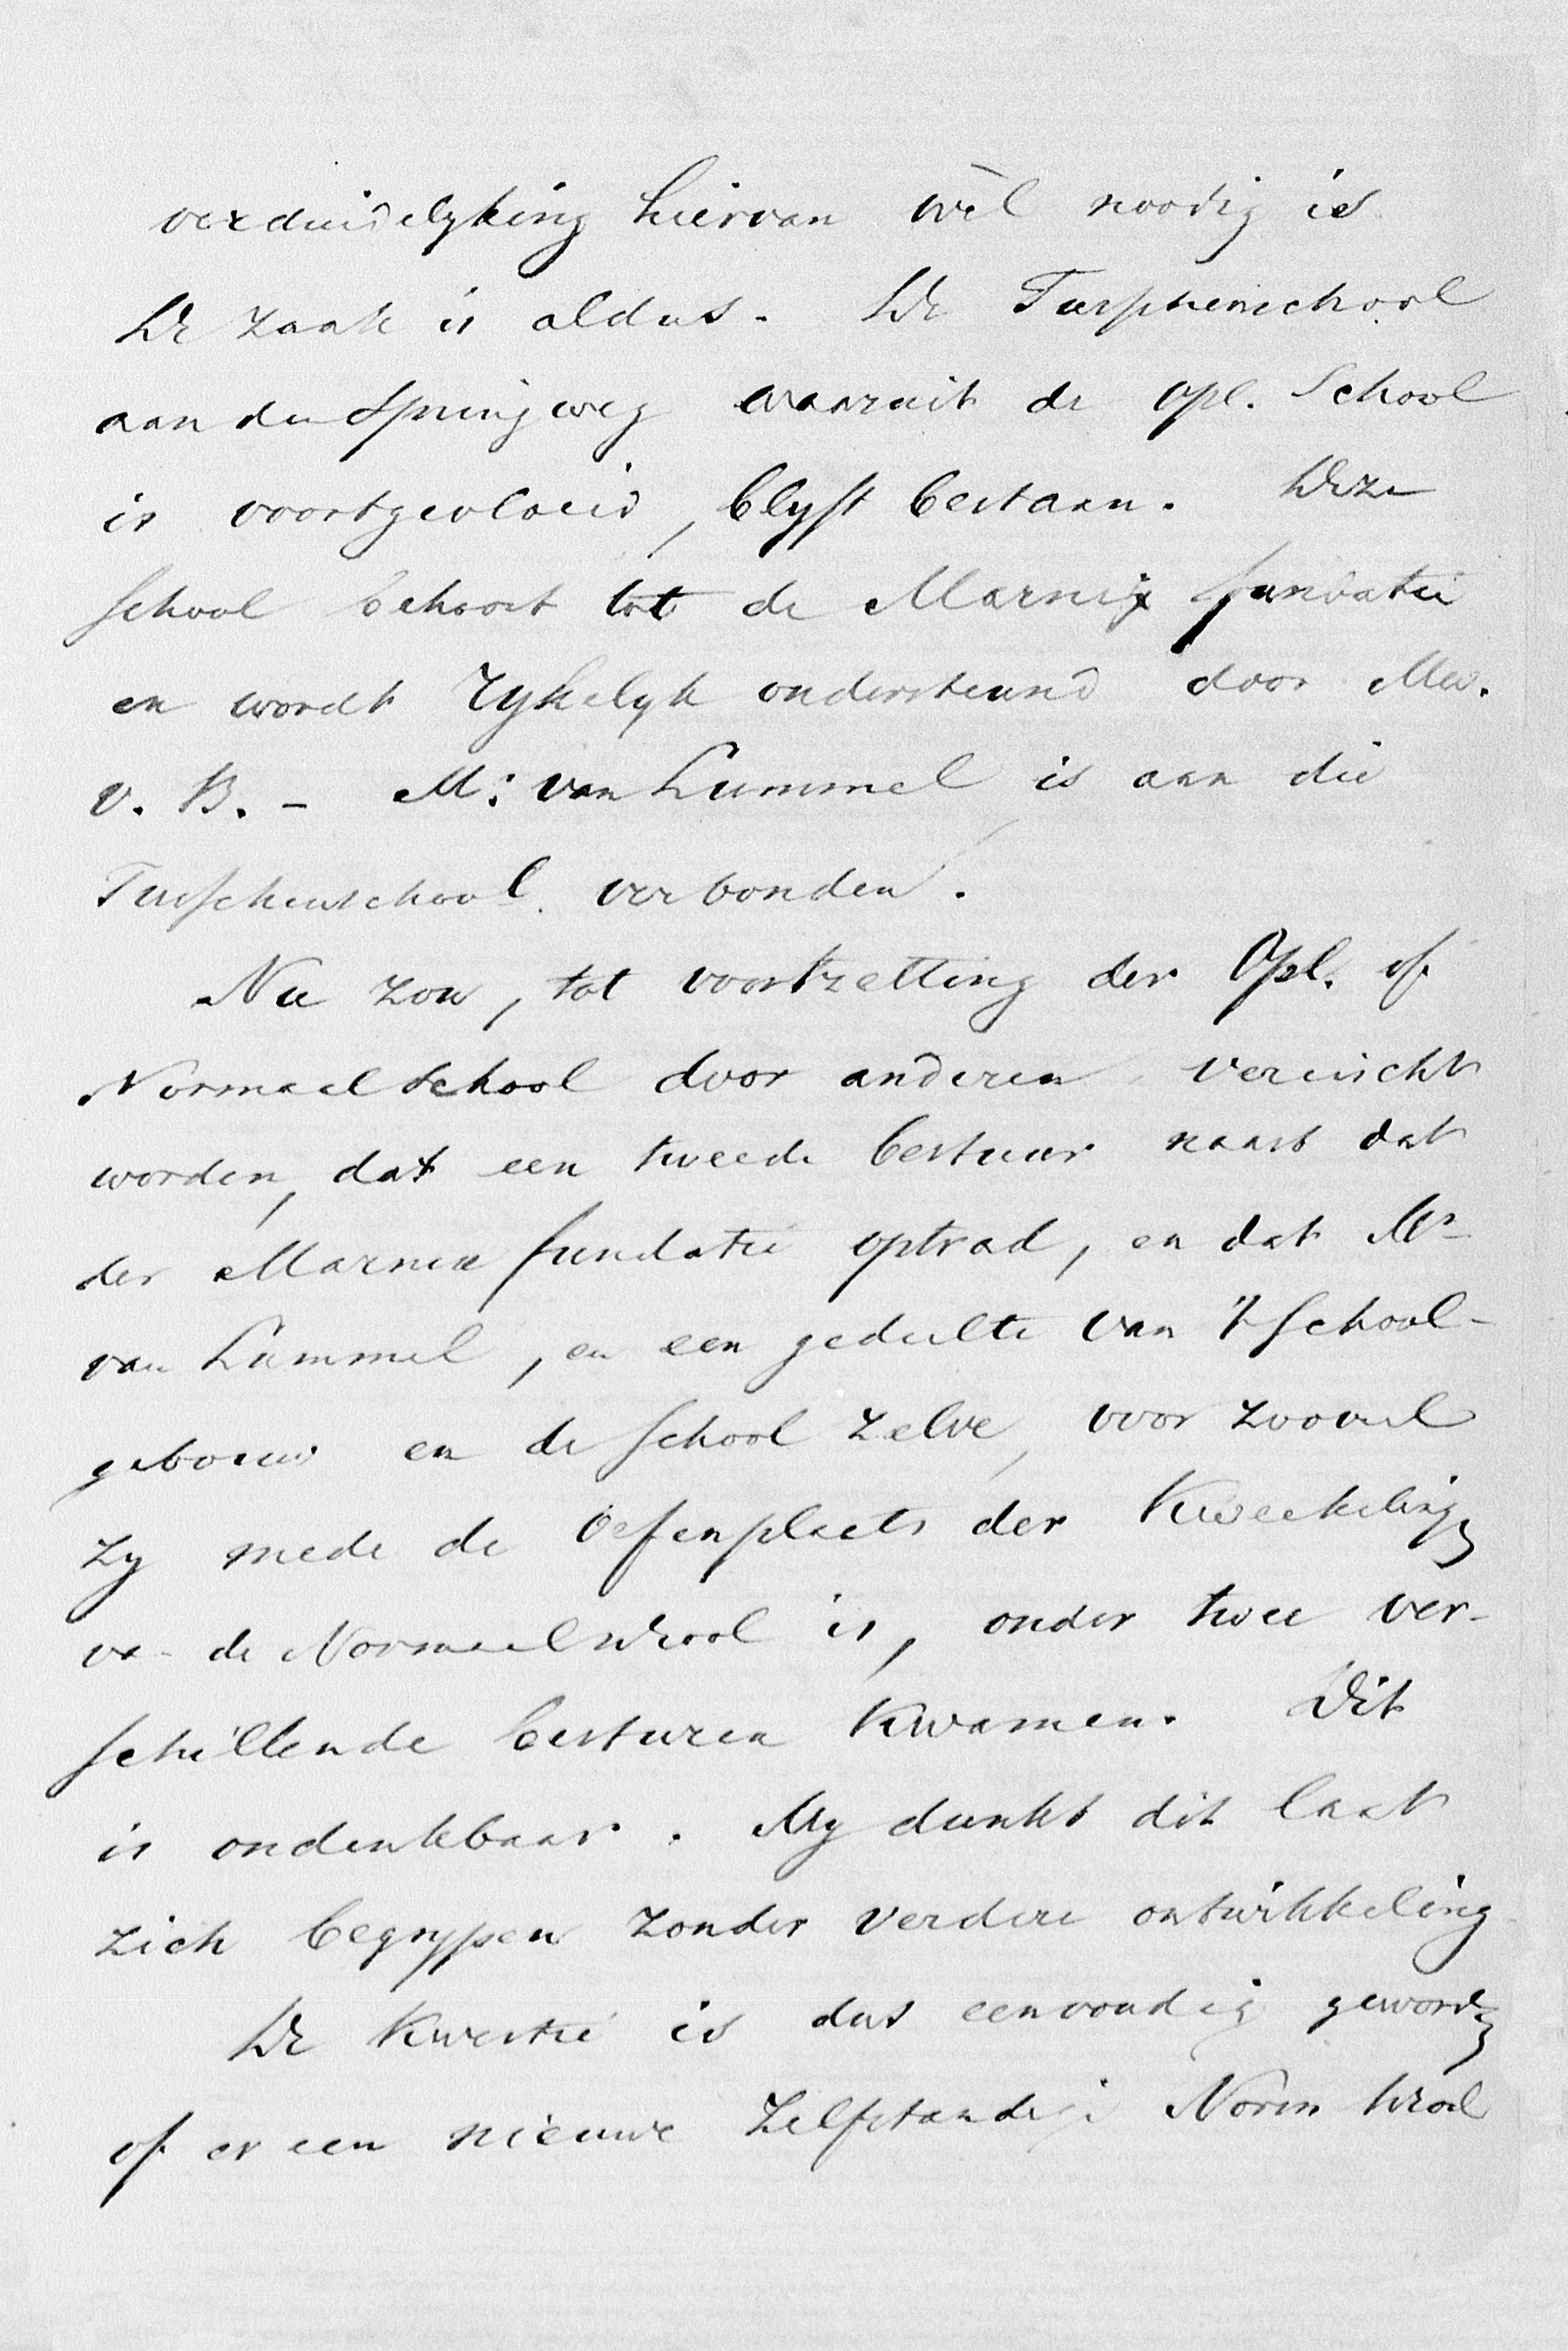 verduidelyking hiervan wèl noodig is
De zaak is aldus. De Tusschenschool
aan den Springweg waaruit de opl. School
is voortgevloeid, blyft bestaan. Deze
school behoort tot de Marnix fundatie
en wordt rykelyk ondersteund door Mev.
v. B. – M: van Lummel is aan die
Tusschenschool verbonden.
Nu zou, tot voortzetting der Opl. of
Normaalschool door anderen vereischt
worden, dat een tweede bestuur naast dat
der Marnix fundatie optrad, en dat Mr
van Lummel, en een gedeelte van 't School-
gebouw en de school zelve, voor zooveel
zy mede de oefenplaats der Kweekelingen
van de Normaalschool is, onder twee ver-
schillende besturen kwamen. Dit
is ondenkbaar. My dunkt dit laat
zich begrypen zonder verdere ontwikkeling
De Kwestie is dus eenvoudig geworden
of er een nieuwe Zelfstandige Norm School